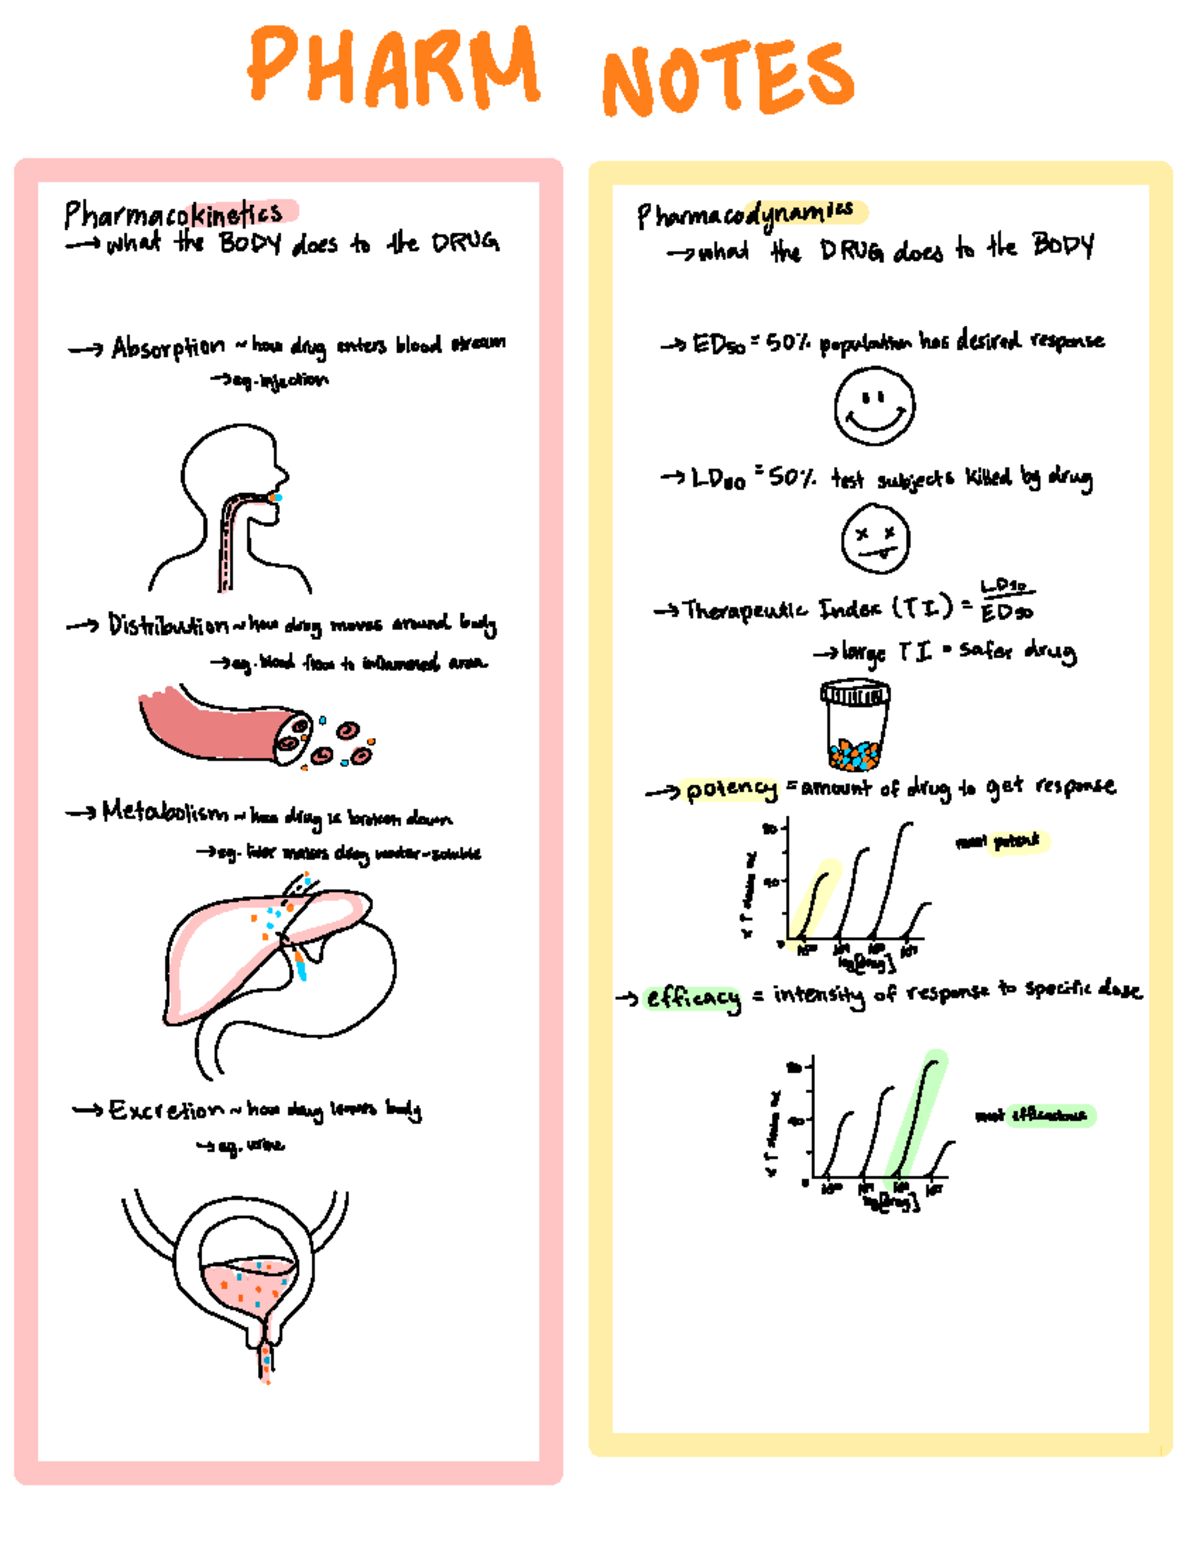 PHARM NOTES
Pharmacokinetics
→ what the BODY does to the DRUG
→ Absorption ~ how drug enters blood stream
→ eg. injection
→ Distribution ~ how drug moves around body
→ eg. blood flow to inflammed area
→ Metabolism ~ how drug is broken down
→ eg. liver makes drug water-soluble
→ Excretion ~ how drug leaves body
→ eg. urine
Pharmacodynamics
→ what the DRUG does to the BODY
→ ED50 = 50% population has desired response
→ LD50 = 50% test subjects killed by drug
→ Therapeutic Index (TI) = LD50
ED50
→ large TI = safer drug
→ potency = amount of drug to get response
most potent
log[drug]
→ efficacy = intensity of response to specific dose
most efficacious
log[drug]